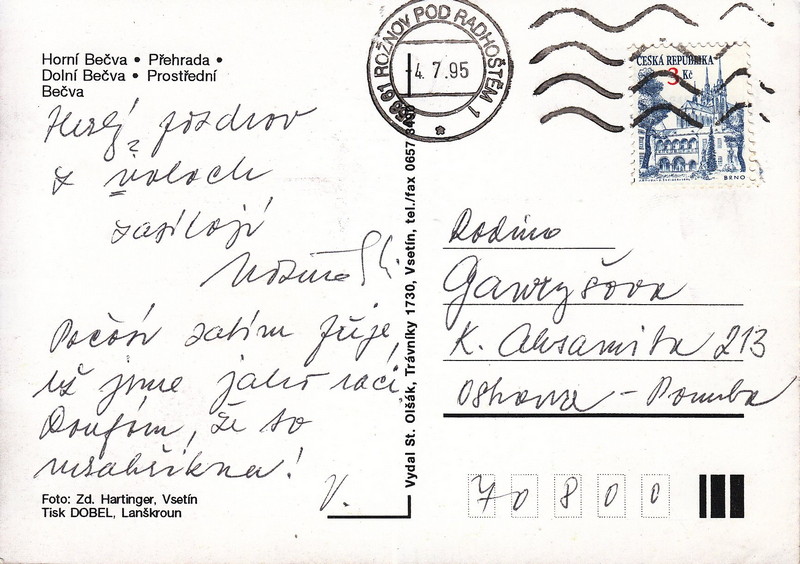 Horní Bečva • Přehrada •
Dolní Bečva • Prostřední
Bečva
pozdrov
z
zasílají
Počasí zatím fuje,
už jsme jako raci.
Doufám, že to
V.
Foto: Zd. Hartinger, Vsetín
Tisk DOBEL, Lanškroun
Vydal St. Olšák, Trávníky 1730, Vsetín, tel./fax 0657
756 61 ROŽNOV POD RADHOŠTĚM 1
-4.7.95
ČESKÁ REPUBLIKA
3 Kč
BRNO
Rodina
Gawryšova
K. Aksamita 213
Ostrava - Poruba
70800